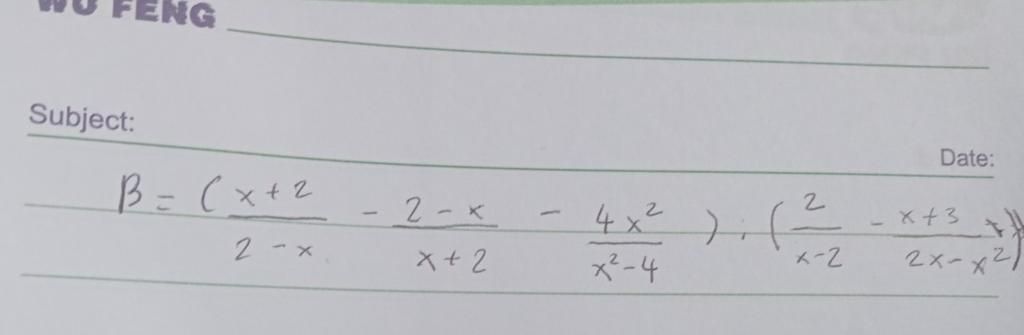 WU FENG
Subject:
Date:
B = (x+2/2-x - 2-x/x+2 - 4x²/x²-4) : (2/x-2 - x+3/2x-x²)